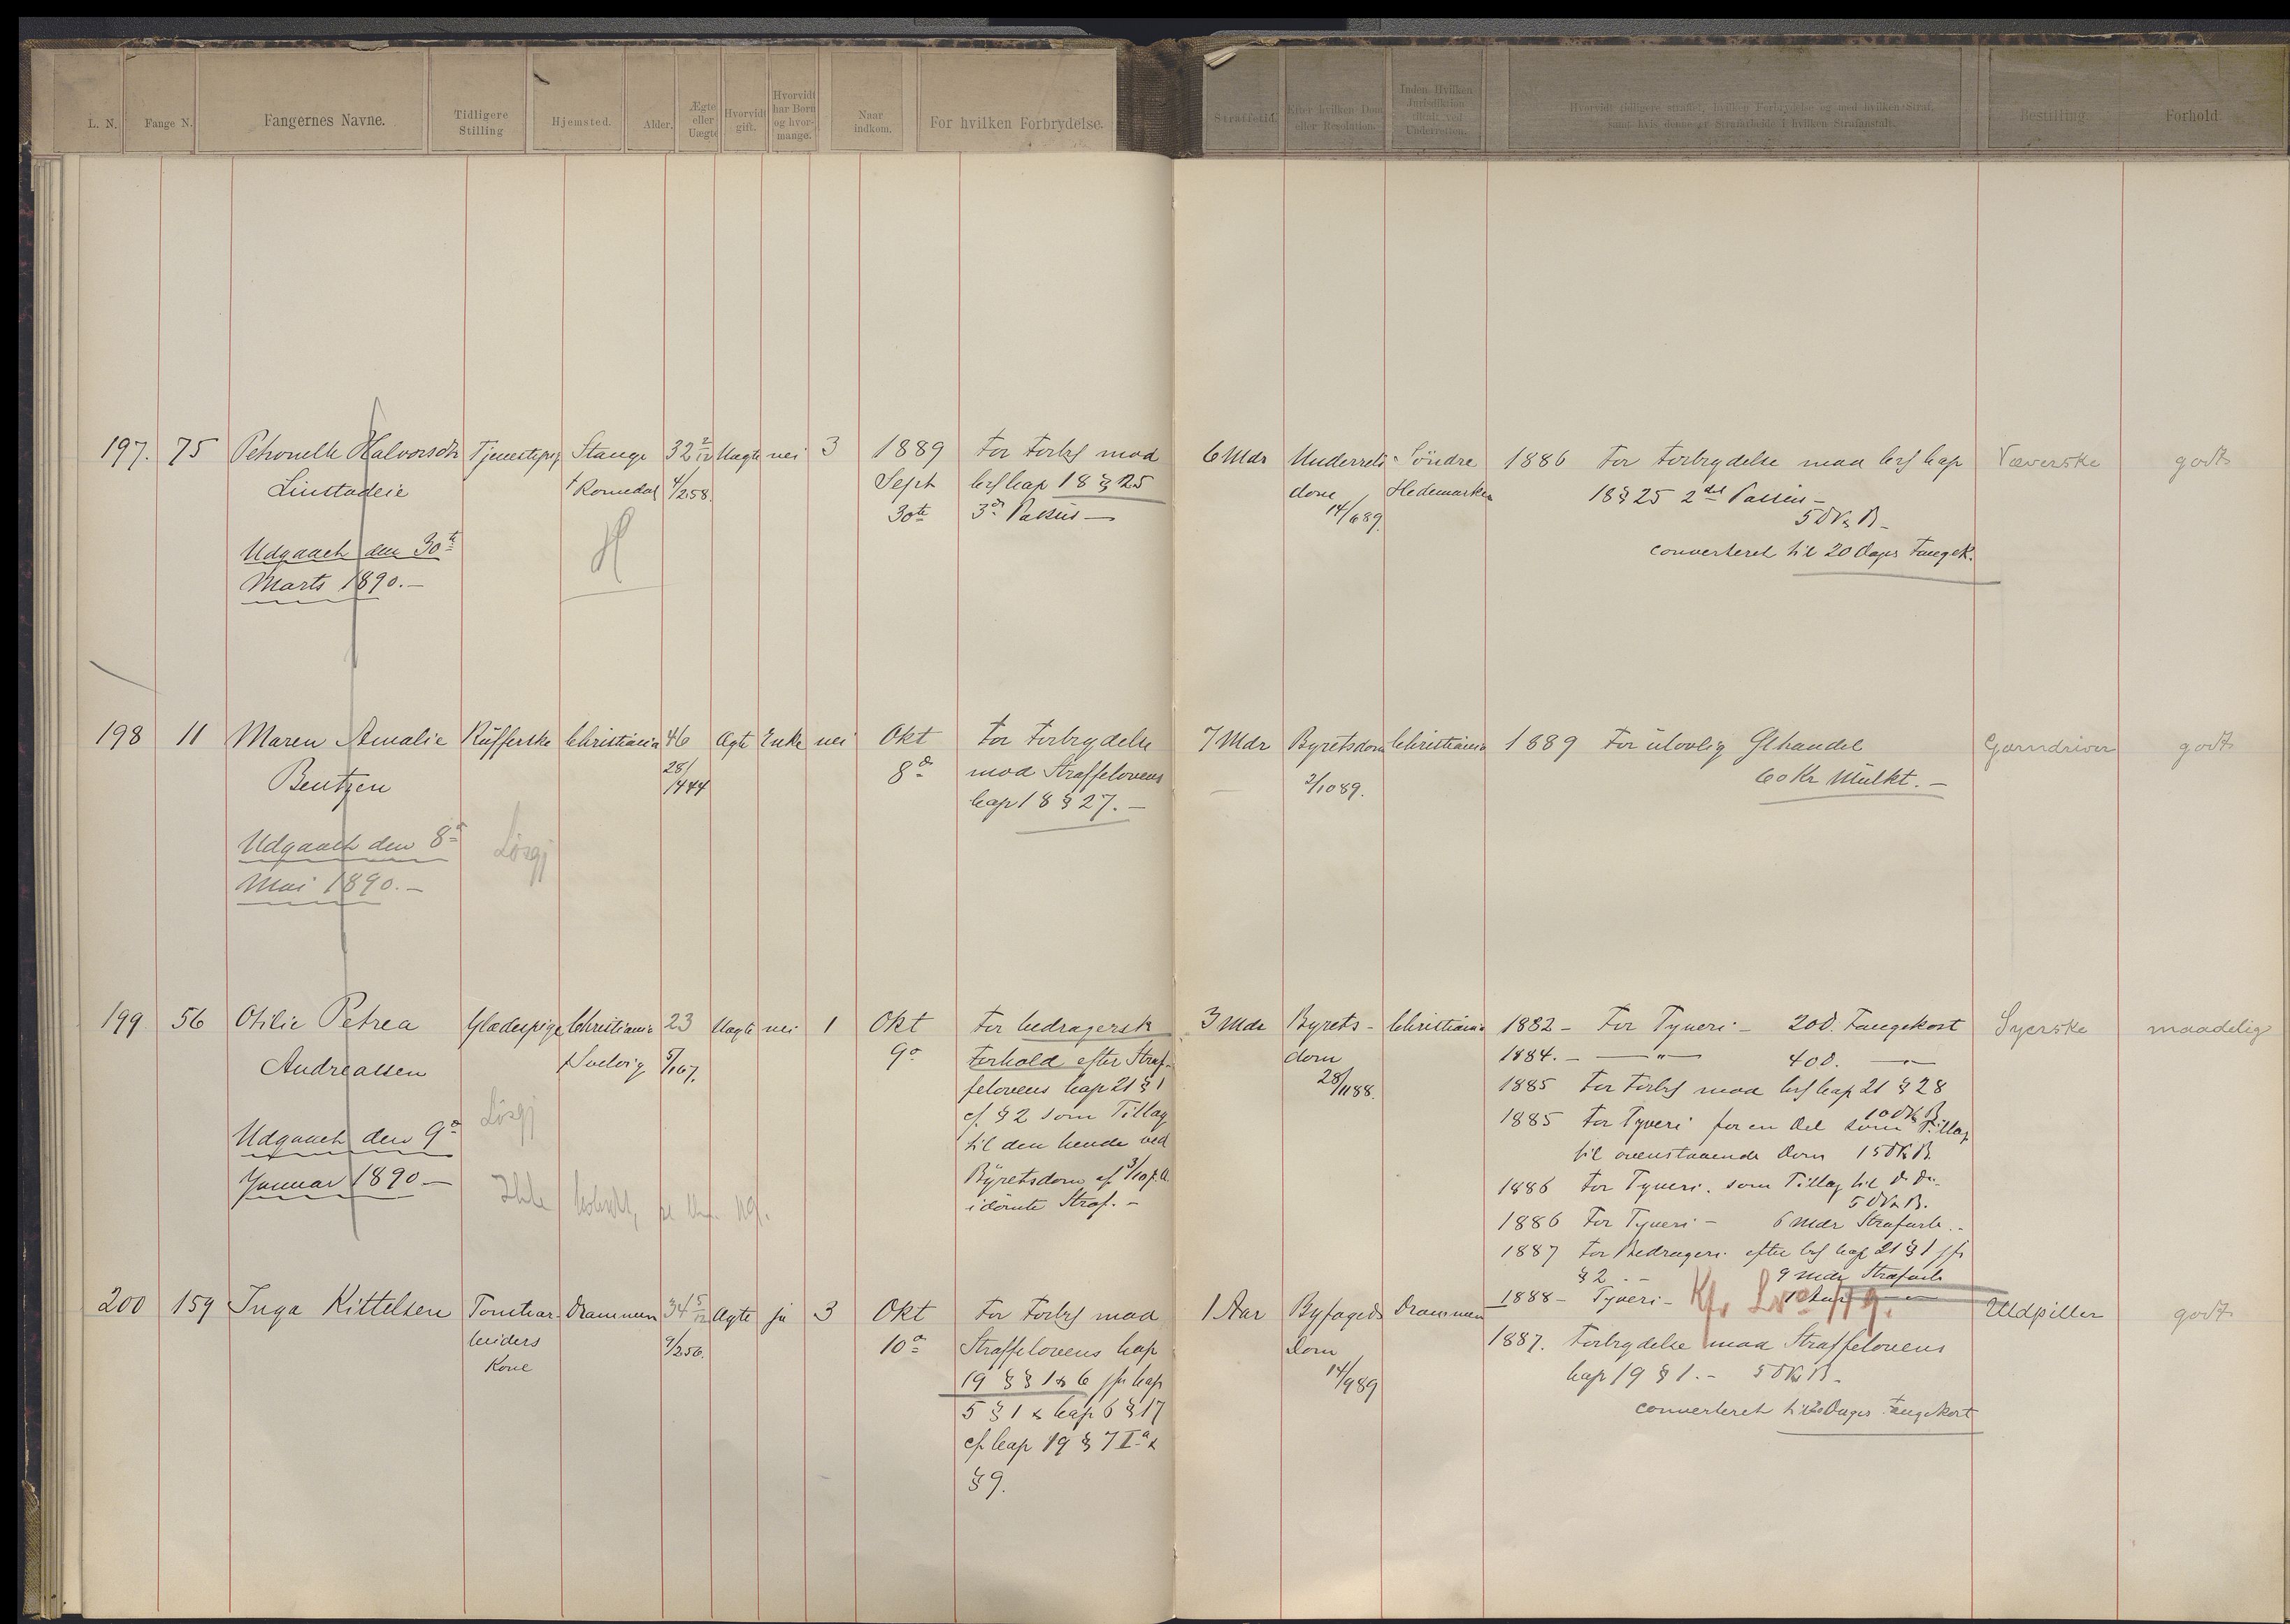 L. N. Fange N. Fangernes Navne. Tidligere Stilling Hjemsted. Alder. Ægte eller Uægte Hvorvidt gift. Hvorvidt har Børn og hvor- mange. Naar indkom. For hvilken Forbrydelse. Straffetid. Efter hvilken Dom eller Resolution. Inden Hvilken Jurisdiktion tiltalt ved Underretten. Hvorvidt tidligere straffet, hvilken Forbrydelse og med hvilken Straf, samt hvis denne er Strafarbeide i hvilken Strafanstalt. Bestilling. Forhold.
197. 75 Petronelle Halvorsdtr Tjenestepig Stange 32 2/12 Uægte nei 3 1889 For Forbr mod 6 Mdr Underrets- Söndre 1886 For Forbrydelse mod Crl Cap Væverske godt
Linstadeie Romedal 4/2 58. Sept Crl Cap 18 § 25 dom Hedemarken 18 § 25 2det Passus -
30te 3die Passus — 14/6 89. 5 D V & B -
Udgaaet den 30te H converteret til 20 Dages Fangek.
Marts 1890. —
198 11 Maren Amalie Rufferske Christiania 46 Ægte Enke nei Okt For Forbrydelse 7 Mdr Byretsdom Christiania 1889 For ulovlig Ølhandel Garndriver godt
Bentzen 28/1 44 8de mod Straffelovens 2/10 89. 60 Kr Mulkt. —
Cap 18 § 27. —
Udgaaet den 8de Løsgj
Mai 1890. —
199 56 Otilie Petrea Glædespige Christiania 23 Uægte nei 1 Okt For bedragersk 3 Mdr Byrets- Christiania 1882 - For Tyveri - 20 D. Fangekost Syerske maadelig
Andreassen Svelvig 5/1 67. 9de Forhold efter Straf- dom 1884. - — " — 40 D. — " —
felovens Cap 21 § 1 28/11 88. 1885 For Forbr mod Crl Cap 21 § 28
Løsgj cf. § 2 som Tillæg 10 D V & B
Udgaaet den 9de til den hende ved 1885 For Tyveri for en Del som Tillæg
Januar 1890 — Byretsdom af 3/10 f. A. til ovenstaaende Dom 15 D V & B.
Ikke idömte Straf. - 1886 For Tyveri. som Tillæg til
5 D V & B.
1886 For Tyveri - 6 Mdr Strafarb. -
1887 For Bedrageri efter Crl Cap 21 § 1 jfr
§ 2 - 9 Mdr Strafarb
1888 - Tyveri - 1 Aar — " —
Kfr L No 119.
200 159 Inga Kittelsen Tomtear- Drammen 34 5/12 Ægte ja 3 Okt For Forbr mod 1 Aar Byfogeds Drammen 1887. Forbrydelse mod Straffelovens Uldpiller godt
beiders 9/2 56. 10de Straffelovens Cap Dom Cap 19 § 1. - 5 D V & B -
Kone 19 §§ 1 & 6 jfr Cap 14/9 89 converteret til Dages Fangekost
5 § 1 & Cap 6 § 17
cf Cap 19 § 7 I a &
§ 9.